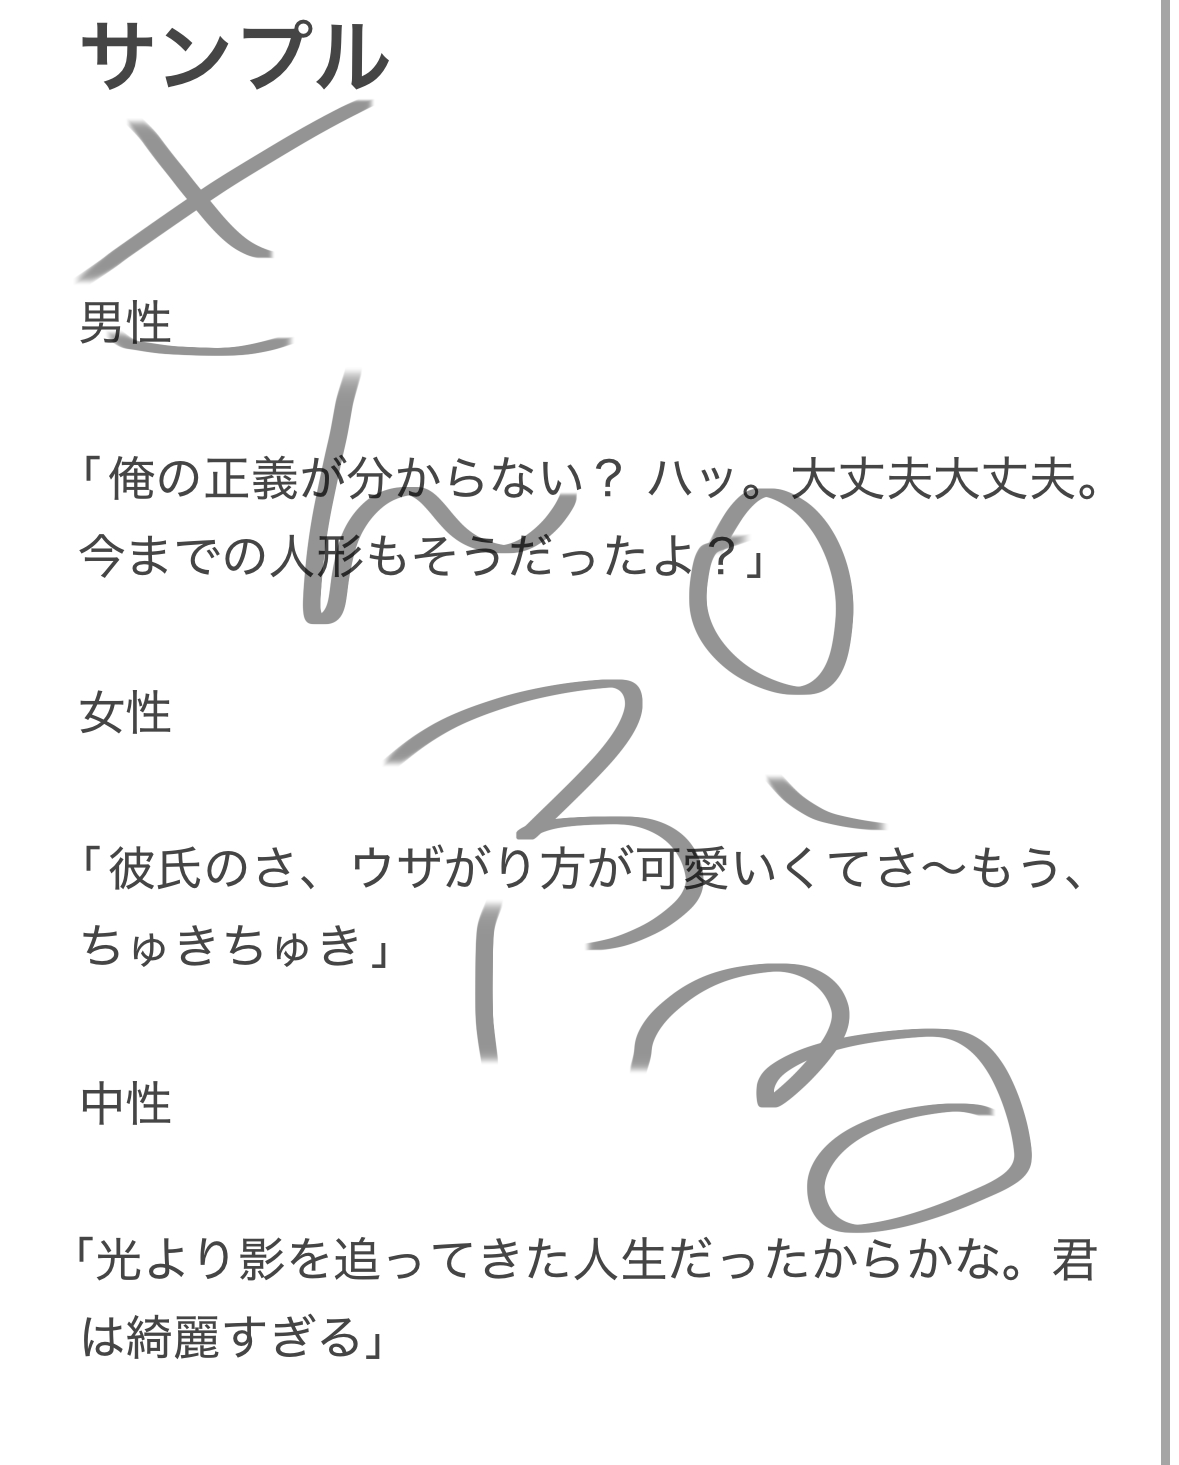 サンプル
男性
「俺の正義が分からない？ ハッ。大丈夫大丈夫。
今までの人形もそうだったよ？」
女性
「彼氏のさ、ウザがり方が可愛いくてさ〜もう、
ちゅきちゅき」
中性
「光より影を追ってきた人生だったからかな。君
は綺麗すぎる」